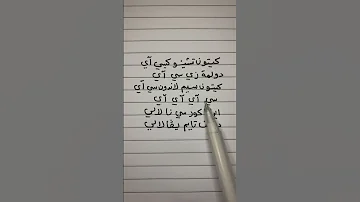 كيتونا تشينو كبي آي
دولمة زي سي آي
كيتونا سيم لاندون سي آي
سي آي آي آي
كود سي نا لالي
تايم يڤا لالي